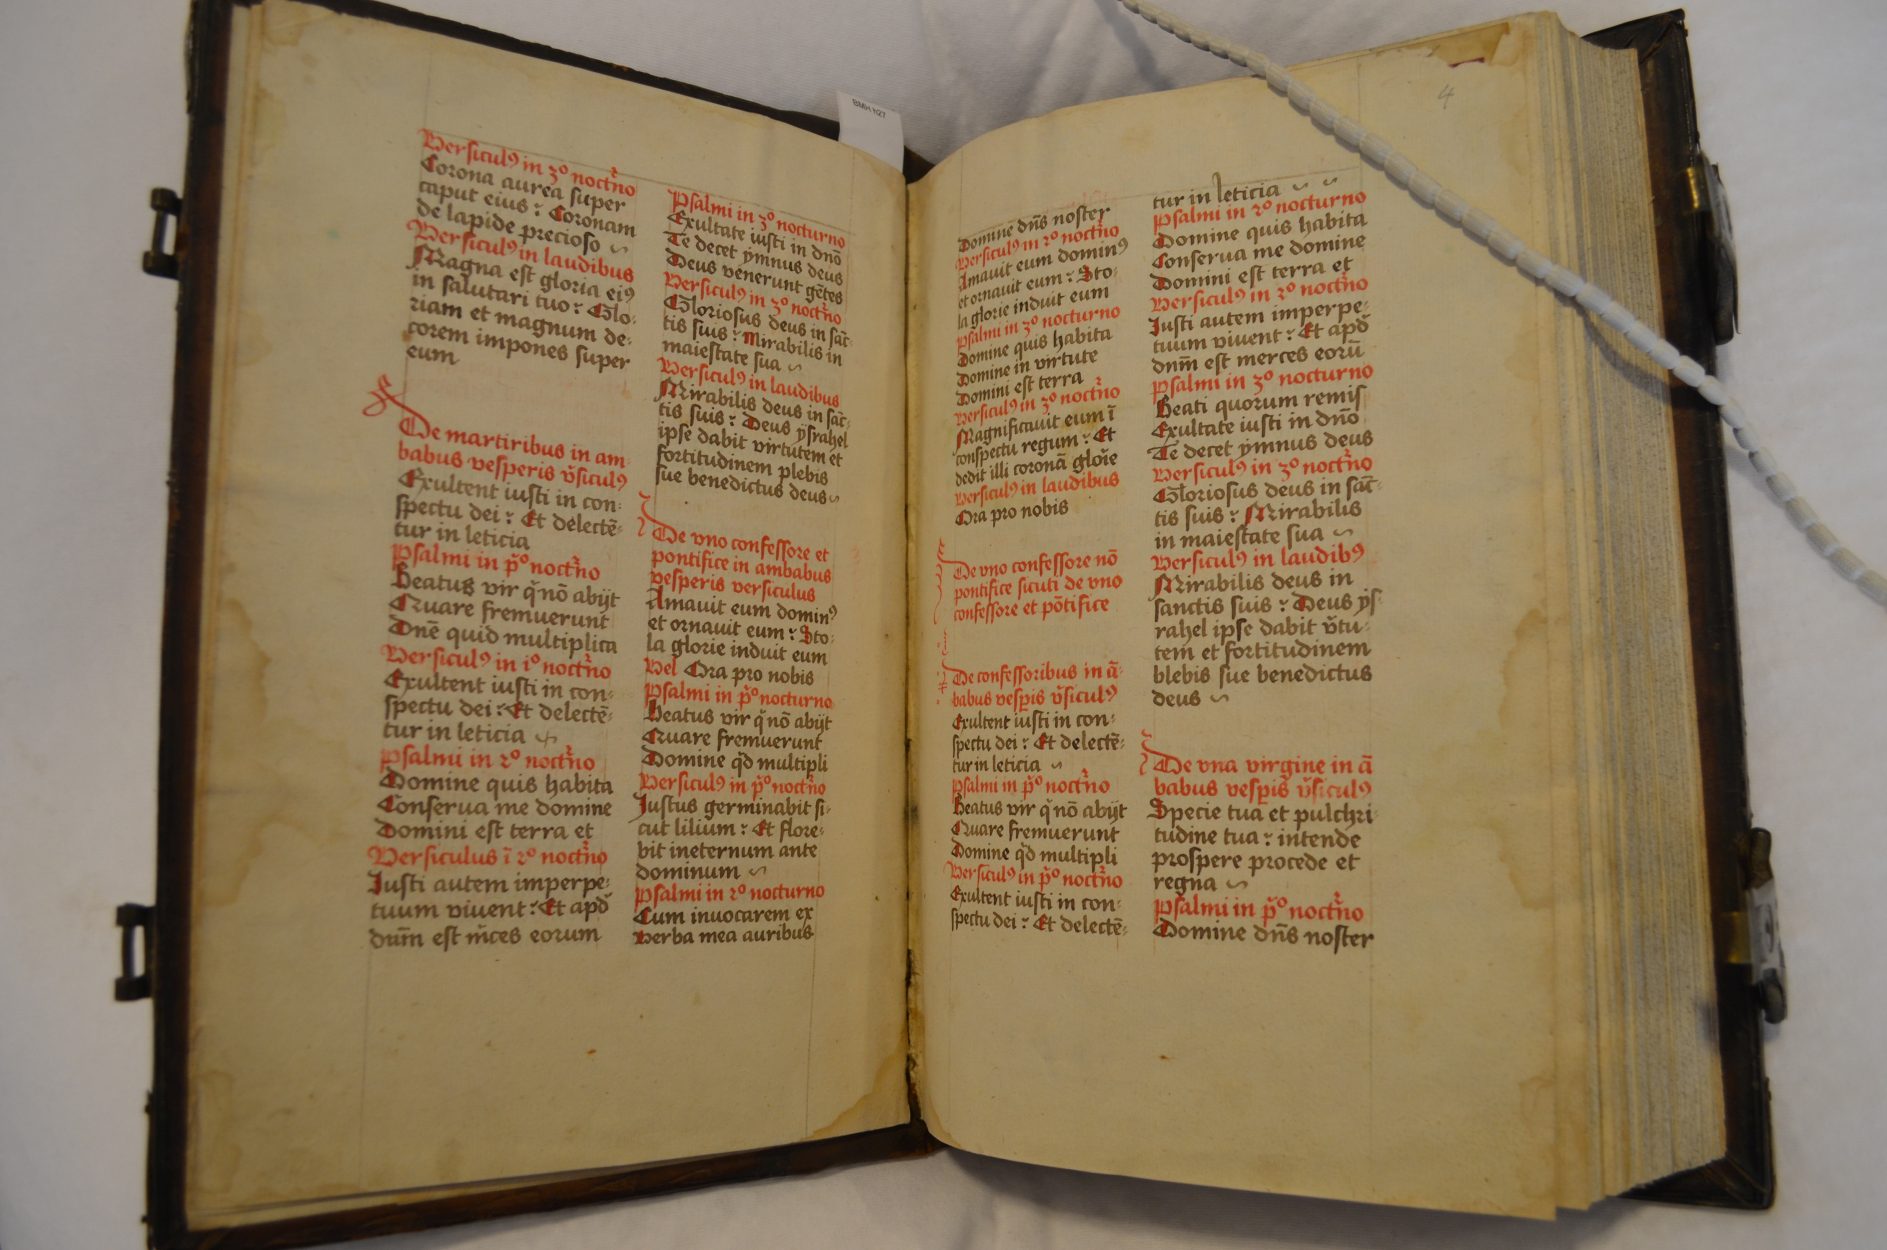 BMH h27
4
Versiculꝰ in 3º noctr̄no
Corona aurea super
caput eius ⁖ Coronam
de lapide precioso
Versiculꝰ in laudibus
Magna est gloria eiꝰ
in salutari tuo ⁖ Glo-
riam et magnum de-
corem impones super
eum
De martiribus in am-
babus vesperis v̄siculꝰ
Exultent iusti in con-
spectu dei ⁖ Et delectē-
tur in leticia
Psalmi in p̄º noctr̄no
Beatus vir q̄ nō abijt
Quare fremuerunt
Dnē quid multiplica
Versiculꝰ in iº noctr̄no
Exultent iusti in con-
spectu dei ⁖ Et delectē-
tur in leticia
Psalmi in 2º noctr̄no
Domine quis habita
Conserua me domine
Domini est terra et
Versiculus ī 2º noctr̄no
Iusti autem imperpe-
tuum viuent ⁖ Et apd̄
dnm̄ est m̄ces eorum
Psalmi in 3º nocturno
Exultate iusti in dnō
Te decet ymnus deus
Deus venerunt gētes
Versiculꝰ in 3º noctr̄no
Gloriosus deus in sāc-
tis suis ⁖ Mirabilis in
maiestate sua
Versiculꝰ in laudibus
Mirabilis deus in sāc-
tis suis ⁖ Deus ysrahel
ipse dabit virtutem et
fortitudinem plebis
sue benedictus deus
De vno confessore et
pontifice in ambabus
vesperis versiculus
Amauit eum dominꝰ
et ornauit eum ⁖ Sto-
la glorie induit eum
Vel Ora pro nobis
Psalmi in p̄º nocturno
Beatus vir q̄ nō abijt
Quare fremuerunt
Domine qd̄ multipli
Versiculꝰ in p̄º noctr̄no
Justus germinabit si-
cut lilium ⁖ Et flore-
bit ineternum ante
dominum
Psalmi in 2º nocturno
Cum inuocarem ex
Verba mea auribus
Domine dn̄s noster
Versiculꝰ in 2º noctr̄no
Amauit eum dominꝰ
et ornauit eum ⁖ Sto-
la glorie induit eum
Psalmi in 3º nocturno
Domine quis habita
Domine in virtute
Domini est terra
Versiculꝰ in 3º noctr̄no
Magnificauit eum ī
conspectu regum ⁖ Et
dedit illi coronā glor̄e
Versiculꝰ in laudibus
Ora pro nobis
De vno confessore nō
pontifice sicuti de vno
confessore et pōtifice
De confessoribus in ā-
babus vesp̄is v̄siculꝰ
Exultent iusti in con-
spectu dei ⁖ Et delectē-
tur in leticia
Psalmi in p̄º noctr̄no
Beatus vir q̄ nō abijt
Quare fremuerunt
Domine qd̄ multipli
Versiculꝰ in p̄º noctr̄no
Exultent iusti in con-
spectu dei ⁖ Et delectē-
tur in leticia
Psalmi in 2º nocturno
Domine quis habita
Conserua me domine
Domini est terra et
Versiculꝰ in 2º noctr̄no
Iusti autem imperpe-
tuum viuent ⁖ Et apd̄
dnm̄ est merces eorū
Psalmi in 3º nocturno
Beati quorum remis
Exultate iusti in dnō
Te decet ymnus deus
Versiculꝰ in 3º noctr̄no
Gloriosus deus in sāc-
tis suis ⁖ Mirabilis
in maiestate sua
Versiculꝰ in laudibꝰ
Mirabilis deus in
sanctis suis ⁖ Deus ys-
rahel ipse dabit v̄tu-
tem et fortitudinem
blebis sue benedictus
deus
De vna virgine in ā
babus vesp̄is v̄siculꝰ
Specie tua et pulchri-
tudine tua ⁖ intende
prospere procede et
regna
Psalmi in p̄º noctr̄no
Domine dn̄s noster